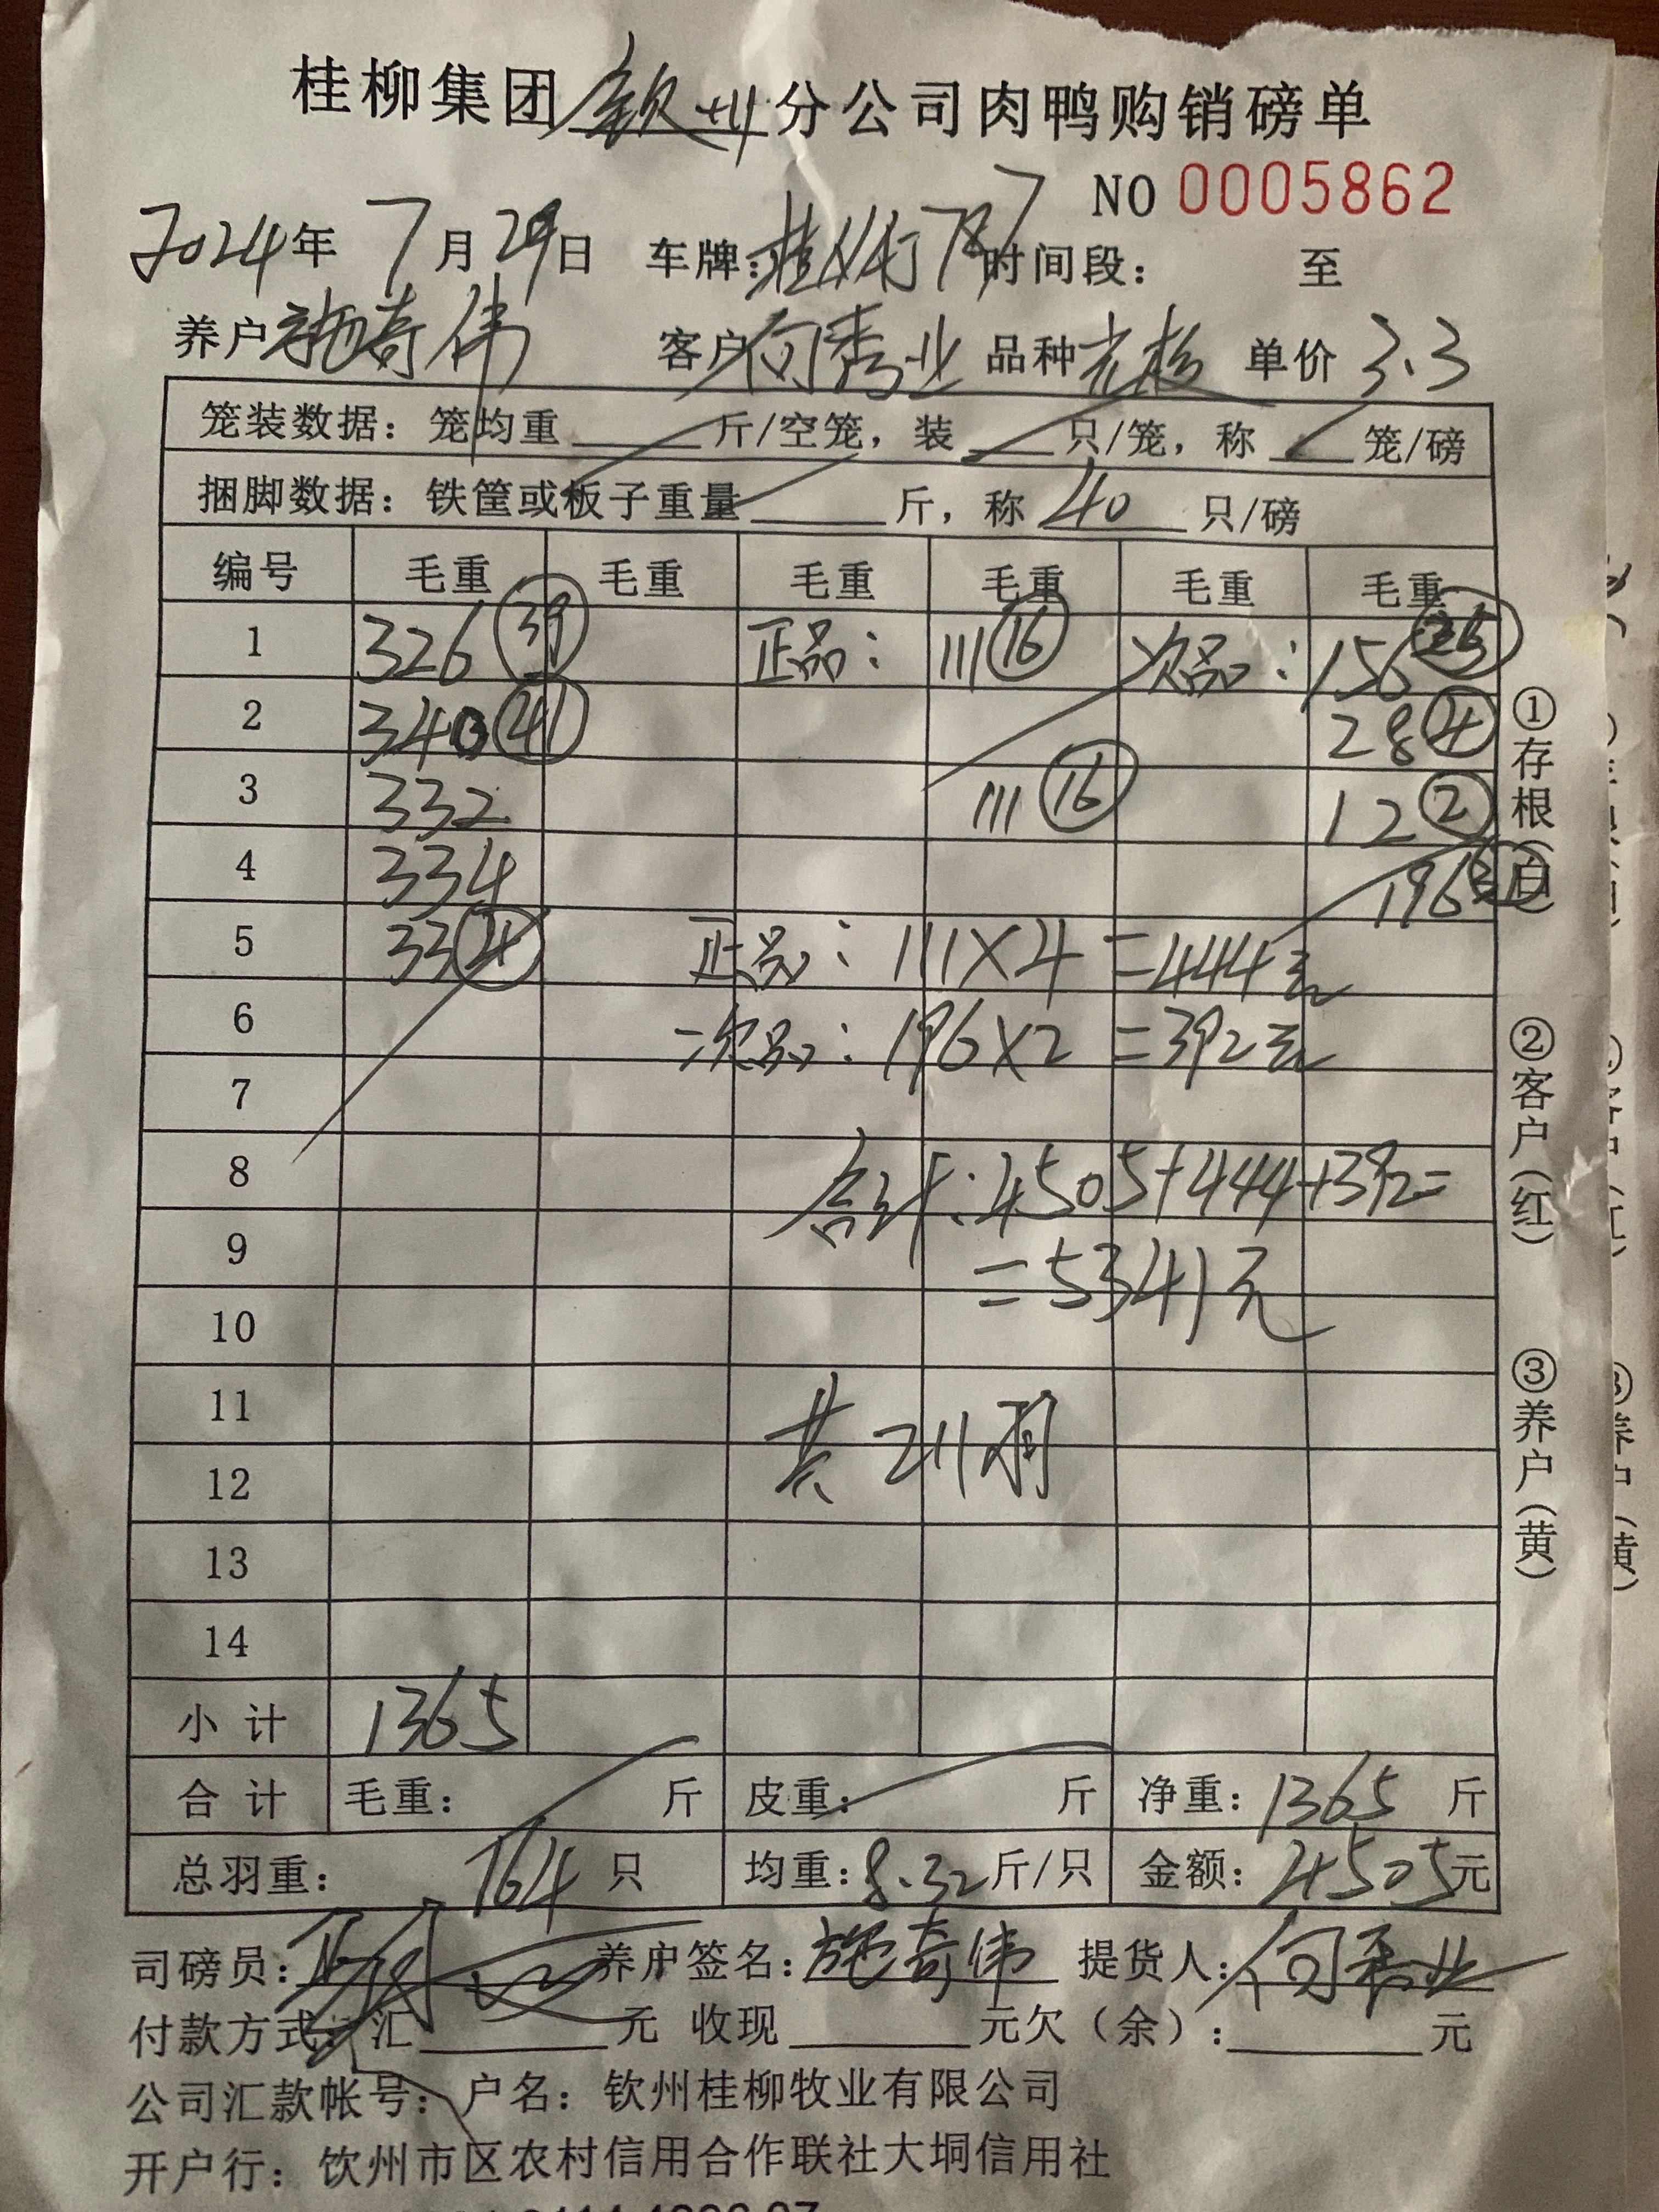 桂柳集团钦州分公司肉鸭购销磅单
NO 0005862
2024年 7月29日 车牌: 787 时间段: 至
养户 施奇伟 客户 向秀业 品种 单价 3.3
笼装数据: 笼均重 斤/空笼, 装 只/笼, 称 笼/磅
捆脚数据: 铁筐或板子重量 斤, 称 40 只/磅
编号 毛重 毛重 毛重 毛重 毛重 毛重
1 326 39 正品: 111 16 次品: 156
2 340 41 28 4
3 332 111 16 12 2
4 334 196
5 33 4 正品: 111×4=444元
6 次品: 196×2=392元
7
8 合计: 4505+444+392=
9 =5341元
10
11
12 共211羽
13
14
小计 1365
合计 毛重: 斤 皮重: 斤 净重: 1365 斤
总羽重: 164 只 均重: 8.32 斤/只 金额: 4505元
司磅员: 养户签名: 施奇伟 提货人: 向秀业
付款方式: 汇 元 收现 元欠(余): 元
公司汇款帐号: 户名: 钦州桂柳牧业有限公司
开户行: 钦州市区农村信用合作联社大垌信用社
①存根(白)
②客户(红)
③养户(黄)